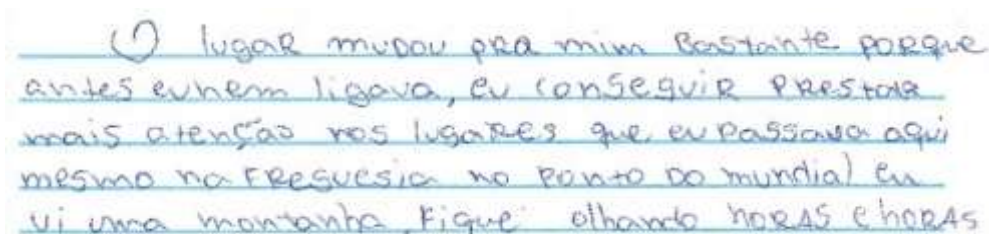 O lugar mudou pra mim Bastante porque
antes eu nem ligava, eu conseguir Prestar
mais atenção nos lugares que eu passava aqui
mesmo na Freguesia no Ponto do mundial eu
vi uma montanha, Fique olhando horas e horas